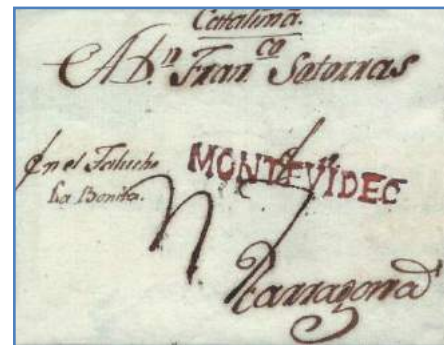 Cataluña.
A Dn. Franco. Satorras
En el Faluche
La Bonita.
MONTEVIDEO
Tarragona